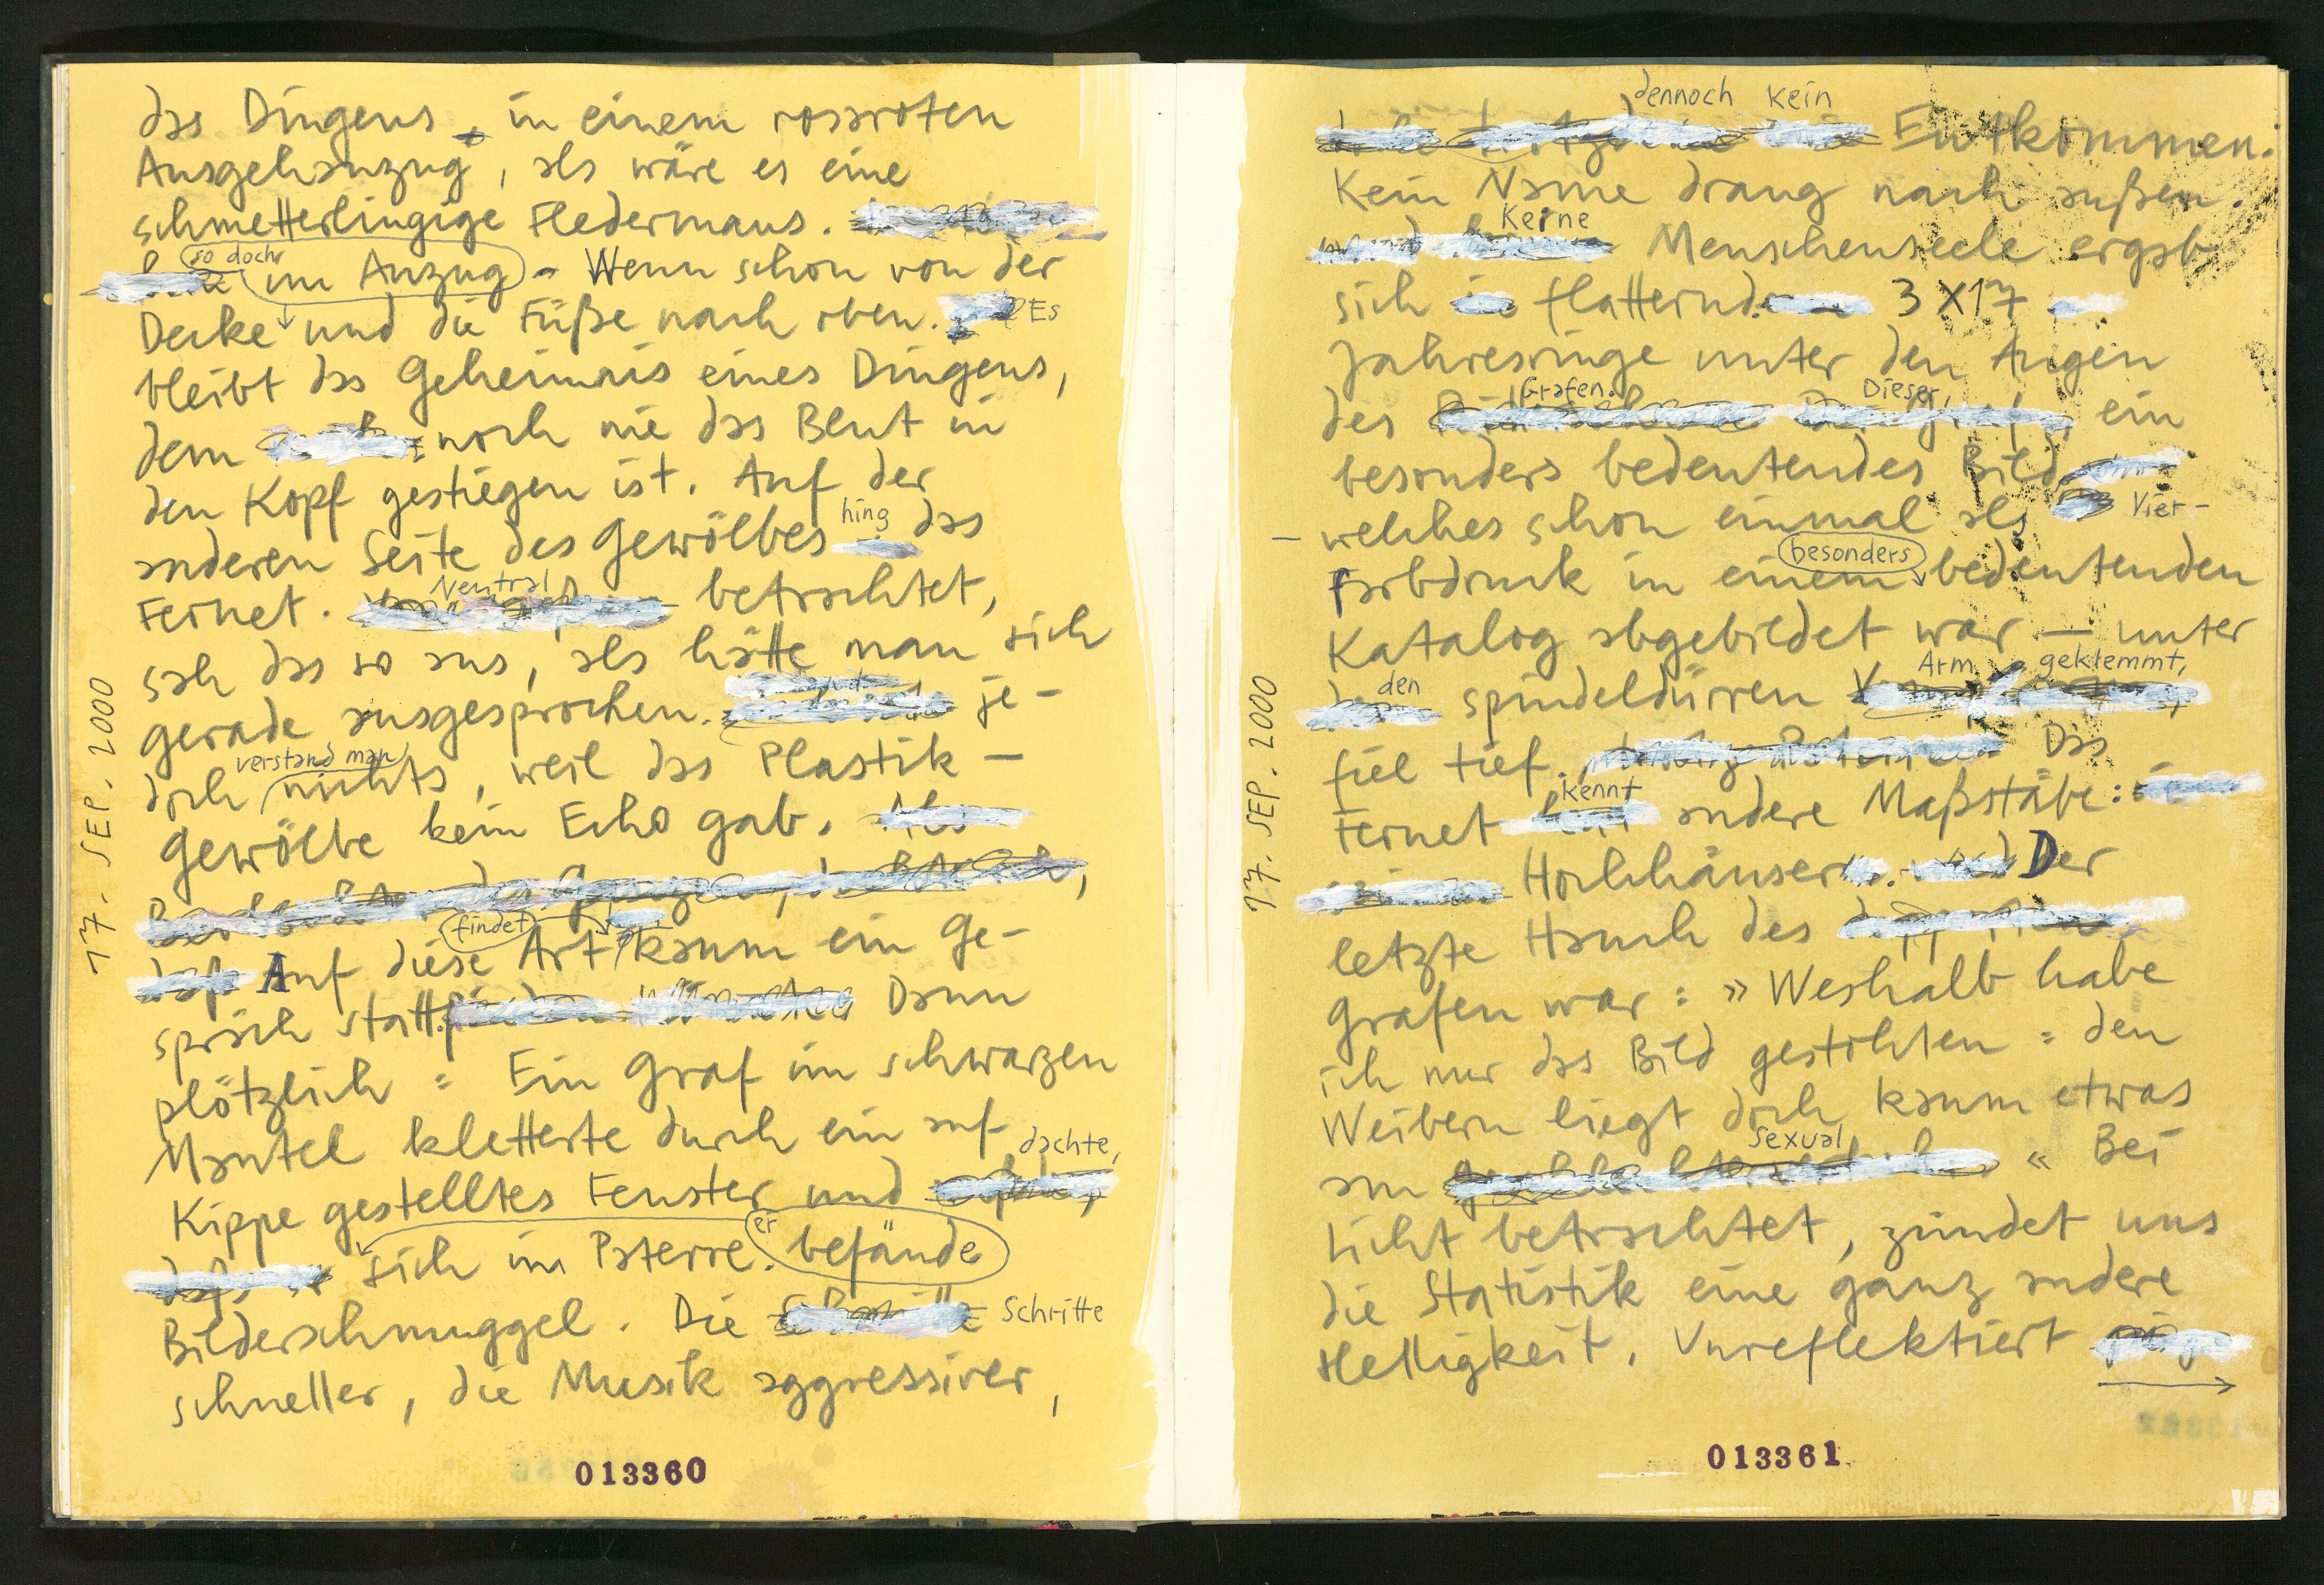 das Dingens, in einem rosaroten
Ausgehanzug, als wäre es eine
schmetterlingige Fledermaus.
so doch
im Anzug - Wenn schon von der
Decke und die Füße nach oben. Es
bleibt das Geheimnis eines Dingens,
dem noch nie das Blut in
den Kopf gestiegen ist. Auf der
hing
anderen Seite des Gewölbes das
Neutral
Fernet. betrachtet,
sah das so aus, als hätte man sich
gerade ausgesprochen. je-
verstand man
doch nichts, weil das Plastik-
gewölbe kein Echo gab.
findet
Auf diese Art kaum ein Ge-
spräch statt. Dann
plötzlich: Ein Graf im schwarzen
Mantel kletterte durch ein auf
dachte,
Kippe gestelltes Fenster und
er
sich im Paterre. befände
Bilderschmuggel. Die Schritte
schneller, die Musik aggressiver,
17. SEP. 2000
013360
dennoch kein
Entkommen.
Kein Name drang nach außen.
Keine
Menschenseele ergab
sich flatternd. 3x17
Jahresringe unter den Augen
Grafen. Dieser,
des ein
besonders bedeutendes Bild
welches schon einmal als Vier-
besonders
farbdruck in einem bedeutenden
Katalog abgebildet war — unter
den Arm geklemmt,
spindeldürren
fiel tief. Das
kennt
Fernet andere Maßstäbe:
Hochhäuser. Der
letzte Hauch des
Grafen war: »Weshalb habe
ich nur das Bild gestohlen: den
Weibern liegt doch kaum etwas
sexual
am « Bei
Licht betrachtet, zündet uns
die Statistik eine ganz andere
Helligkeit. Unreflektiert
17. SEP. 2000
013361